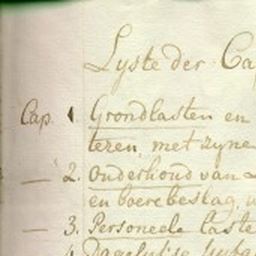 Lyste der Ca
Cap. 1. Grondlasten en
teren, met zyne
— 2. Onderhoud van
en boere beslag,
— 3. Personeele laste
4. Dagelykse